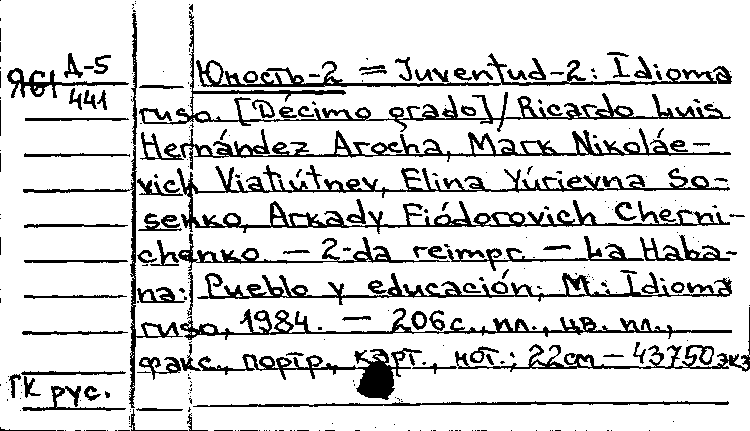 Я61 Д-5/441
Юность-2 = Juventud-2: Idioma
ruso. [Décimo grado] / Ricardo Luis
Hernández Arocha, Mark Nikoláe-
vich Viatiútnev, Elina Yúrievna So-
senko, Arkady Fiódorovich Cherni-
chenko — 2-da reimpr. — La Haba-
na: Pueblo y educación; M.: Idioma
ruso, 1984. — 206с., ил., цв. ил.,
факс., портр., карт., нот.; 22cm — 43750экз
ГК рус.